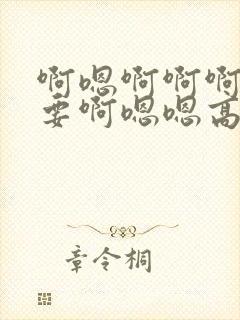 啊嗯啊啊啊
要啊嗯嗯高
章令桐